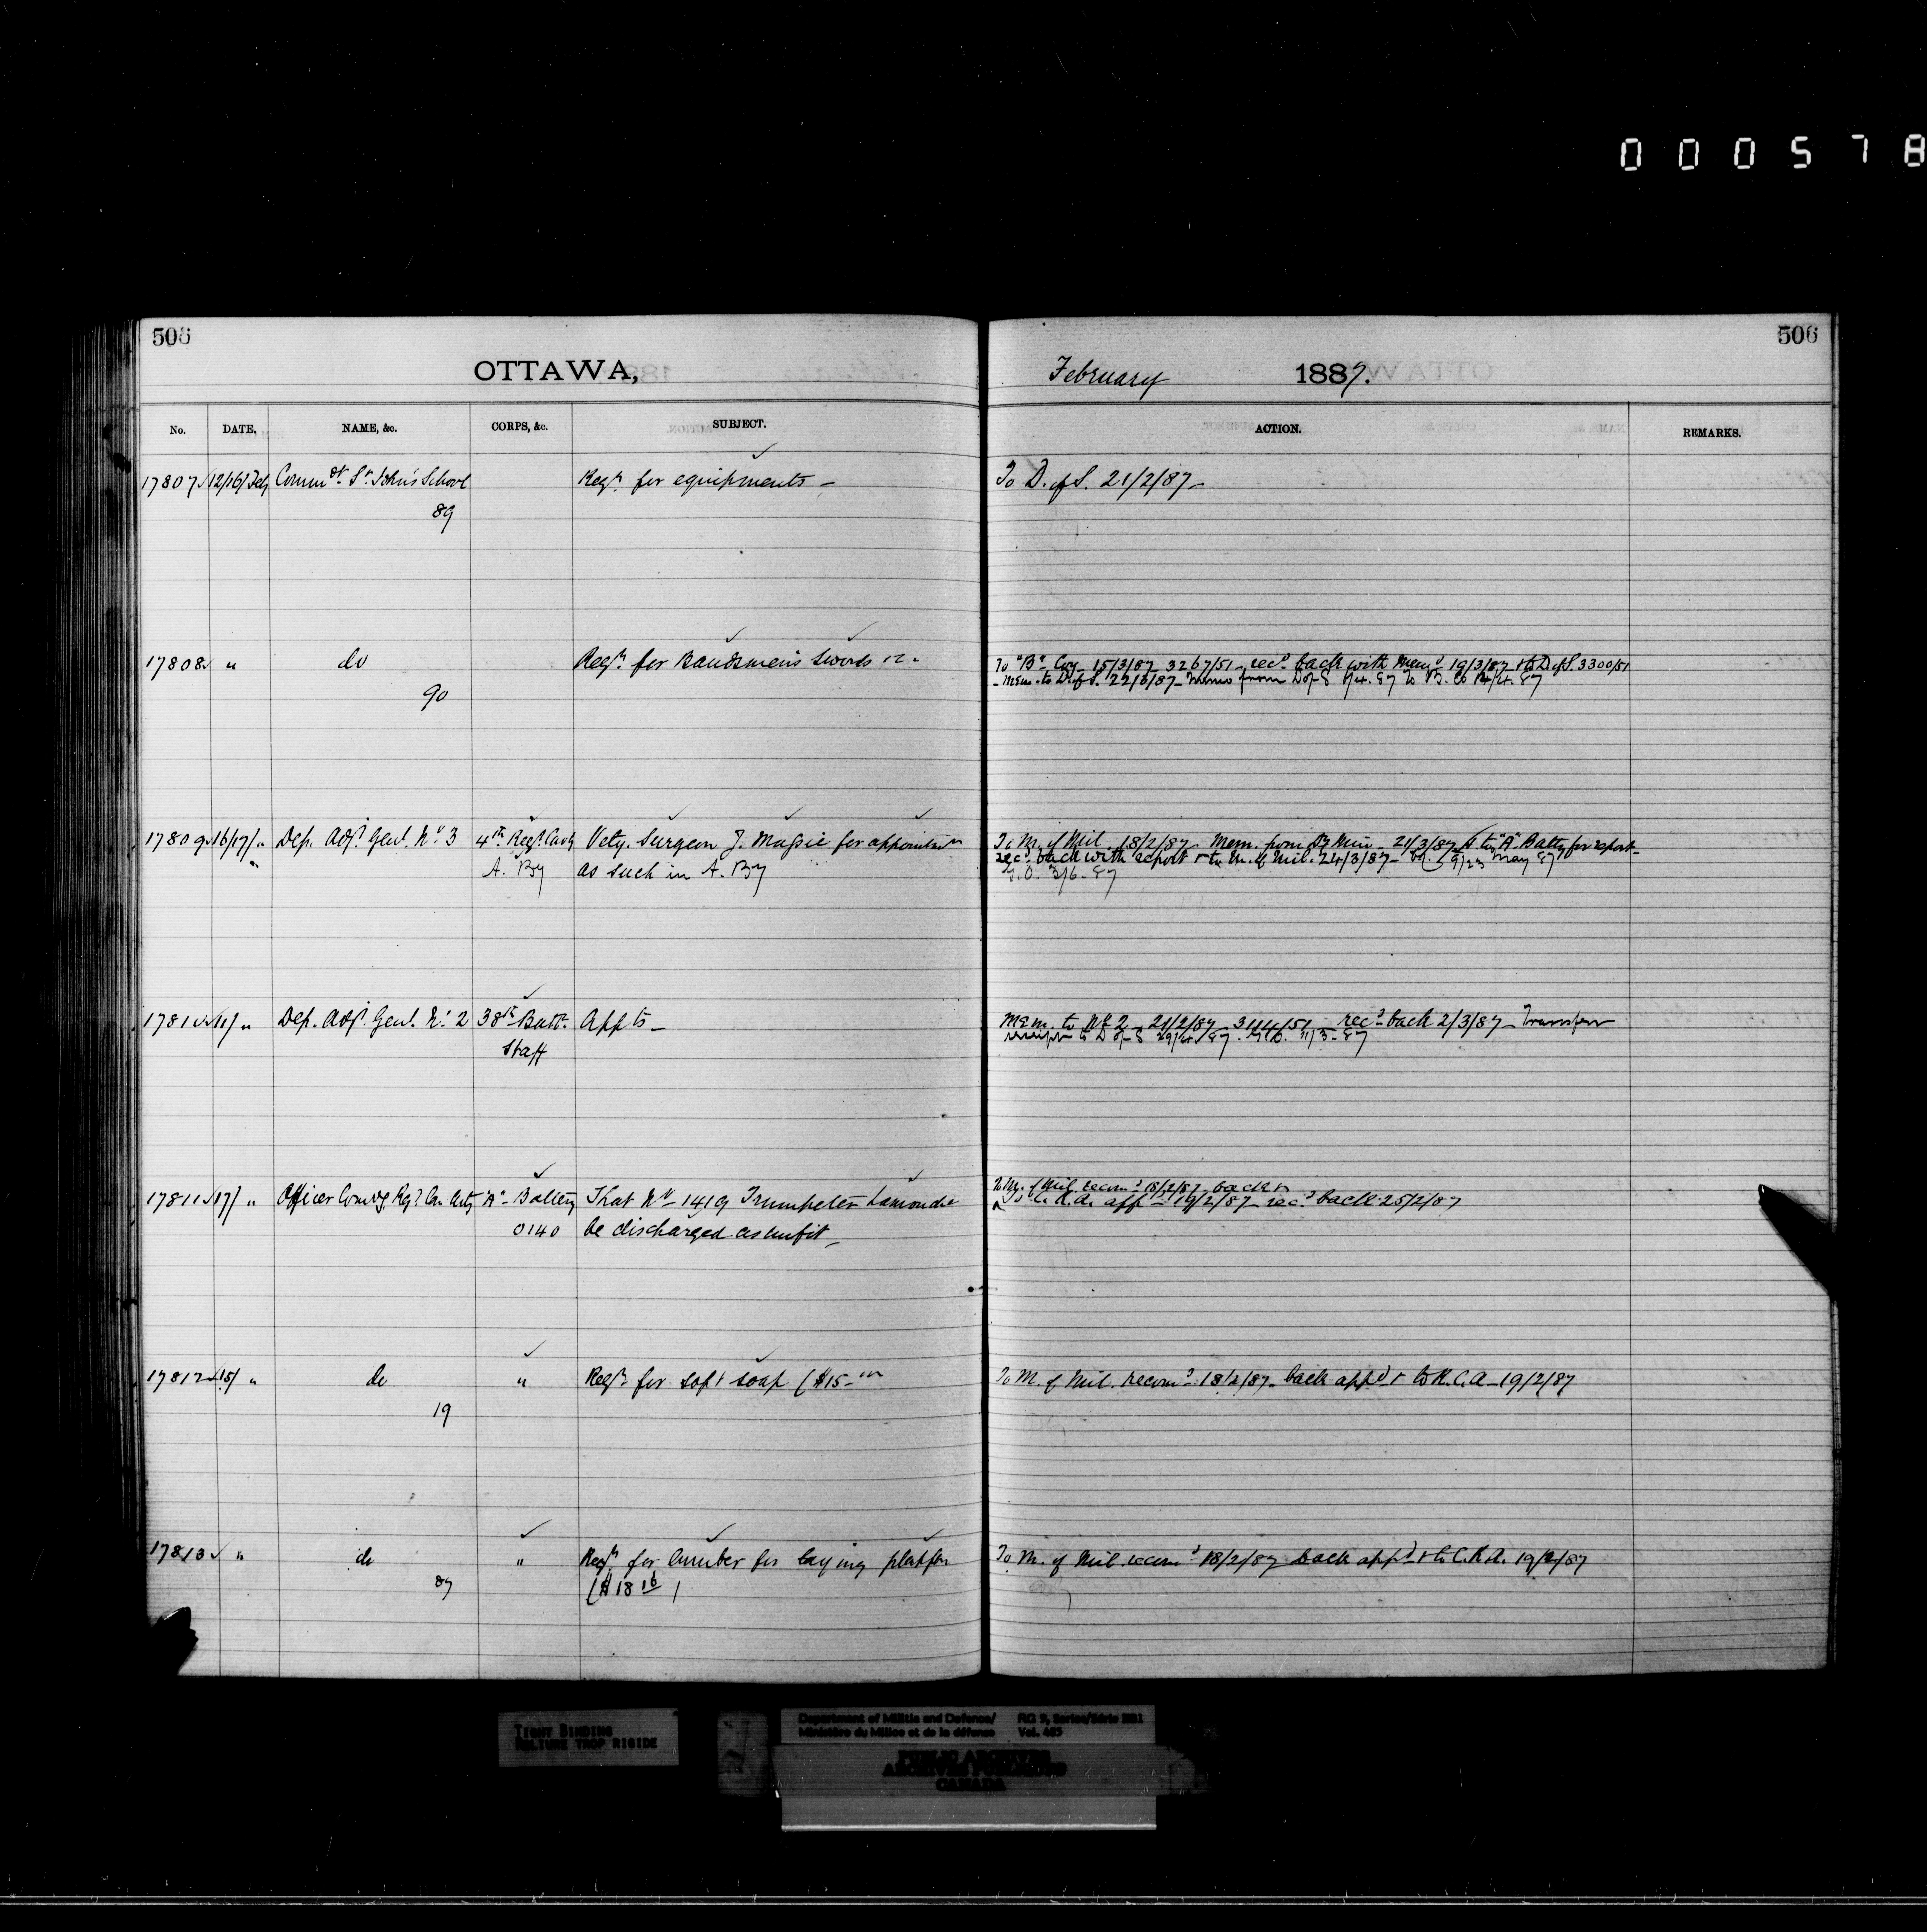 000578
506
506
OTTAWA,
February 1887.
No. DATE. NAME, &c. CORPS, &c. SUBJECT. ACTION. REMARKS.
17807 12/16/Feb Commdt. St. John's School Reqn. for equipments – To D. of S. 21/2/87 –
89
17808 " do Reqn. for Bandsmen's Swords To "B" Coy – 15/3/87 – 3267/51 – recd. back with Memo 19/3/87 & to D. of S. 3300/51
90 – Mem. to D. of S. 22/3/87 – Memo from D of S
17809 16/17/ " Dep. Adjt. Genl. No. 3 4th Regt. Cavy Vety. Surgeon J. Massie for appointment To M. of Mil. 18/2/87 – Mem. from Dy Min – 21/3/87 & to "A" Batty for report –
" A. By as such in A. By recd. back with report & to M. of Mil. 24/3/87 – May 87
G.O. 3/6.87
17810 11/ " Dep. Adjt. Genl. No. 2 38th Batt. Appts – Mem. to No 2 – 21/2/87 – 3114/51 – recd. back 2/3/87 – Transfer
Staff receipt to D of S 29/4/87. G.O. 11/3.87
17811 17/ " Officer Comdg. Rgt. Can. Arty "A" Battery That No 1419 Trumpeter Lamondé To M. of Mil. recomd. 18/2/87 – back &
0140 be discharged as unfit – To C. R.A. appd – 19/2/87 – recd. back 25/2/87
17812 15/ " do " Reqn. for soft soap ($15– To M. of Mil. recomd. 18/2/87 – back appd & to R.C.A – 19/2/87
19
17813 " do " Reqn. for lumber for laying platfm To M. of Mil. recomd 18/2/87 back appd. & to C.R.A. 19/2/87
87 ($18 16)
TIGHT BINDING
RELIURE TROP RIGIDE
Department of Militia and Defence/ RG 9, Series/Série IIB1
Ministère du Milice et de la défense Vol. 465
PUBLIC ARCHIVES
ARCHIVES PUBLIQUES
CANADA